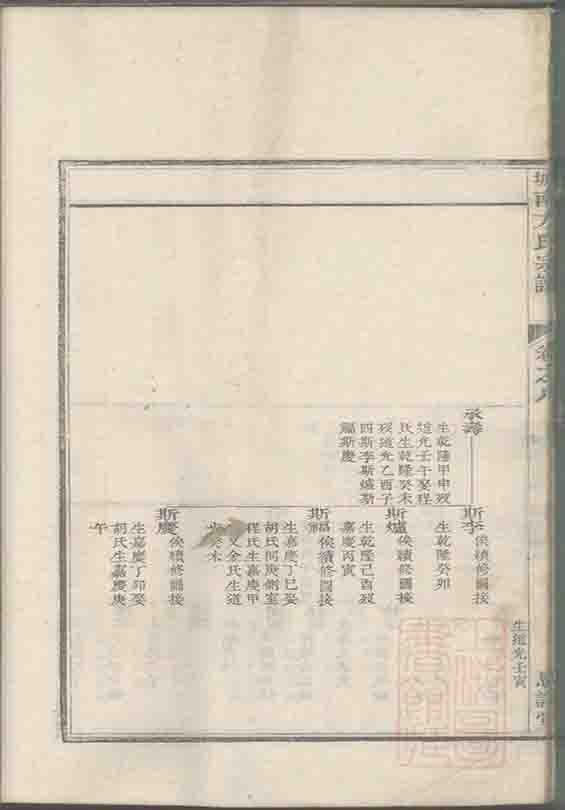 城南方氏宗譜
卷之八
生道光壬寅
承濤
生乾隆甲申歿
道光壬午娶程
氏生乾隆癸未
歿道光乙酉子
四斯李斯爐斯
福斯慶
斯李
俟續修圖接
生乾隆癸卯
斯爐
俟續修圖接
生乾隆己酉歿
嘉慶丙寅
斯福
俟續修圖接
生嘉慶丁巳娶
胡氏同庚側室
程氏生嘉慶甲
又余氏生道
光癸未
斯慶
俟續修圖接
生嘉慶丁卯娶
胡氏生嘉慶庚
午
上海圖書館藏